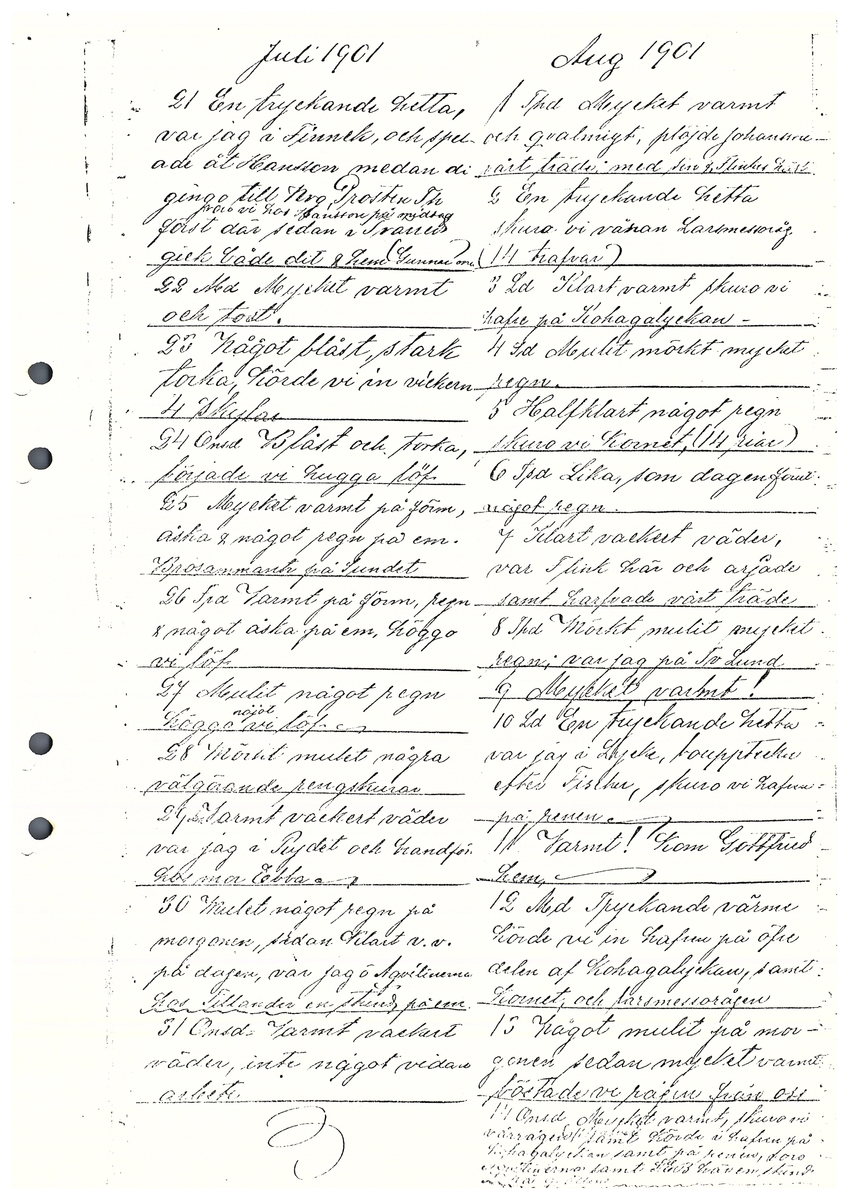 Juli 1901
21 En tryckande hetta,
var jag i Finnek, och spel-
ade åt Hansson medan di
gingo till Kvg Prosten Th
varo vi hos Hansson på middag
först där sedan i
gick både dit & hem (Gunnar me
22 Md Mycket varmt
och tost.
23 Något blåst, stark
torka, körde vi in vickern
4 skylar
24 Onsd Blåst och torka,
började vi hugga löf
25 Mycket varmt på förm,
åska & något regn på em.
på Sundet
26 Tpd Varmt på förm, regn
& något åska på em, höggo
vi löf
27 Mulit något regn
höggo något vi löf
28 Mörkt mulet några
välgörande rengskurar
29 Varmt vackert väder
var jag i Rydet och handför
hos mor Ebba
30 Mulet något regn på
morgonen, sedan klart v. v.
på dagen, var jag ö Agvilinerna
hos Tillander en stund på em
31 Onsd Varmt vackert
väder, inte något vidare
arbete.
Aug 1901
1 Tpd Mycket varmt
och qvalmigt, plöjde Johannes
vårt träde, med sin & Flinkes häst
2 En tryckande hetta
skuro vi vänan Larsmessoråg
(14 trafvar)
3 Ld Klart varmt skuro vi
hafre på Kohagalyckan -
4 Sd Mulit mörkt mycket
regn.
5 Halfklart något regn
skuro vi Kornet, (14 riar)
6 Tpd Lika, som dagen förut
något regn.
7 Klart vackert väder,
var Flink här och arjade
samt harfvade vårt träde
8 Tpd Mörkt mulit mycket
regn; var jag på Tv Lund
9 Mycket varmt!
10 Ld En tryckande hetta
var jag i Lycke, boupptecknn
efter Fischer, skuro vi hafren
på renen
11 Varmt! kom Gottfried
hem,
12 Md Tryckande värme
körde vi in hafren på öfre
delen af Kohagalyckan, samt
Kornet, och Larsmessorågen
13 Något mulit på mor-
gonen sedan mycket varmt
tröstade vi rågen från oss
14 Onsd Mycket varmt, skuro vi
vårrågen samt körde i hafren på
Kohagalyckan samt på renen,
samt